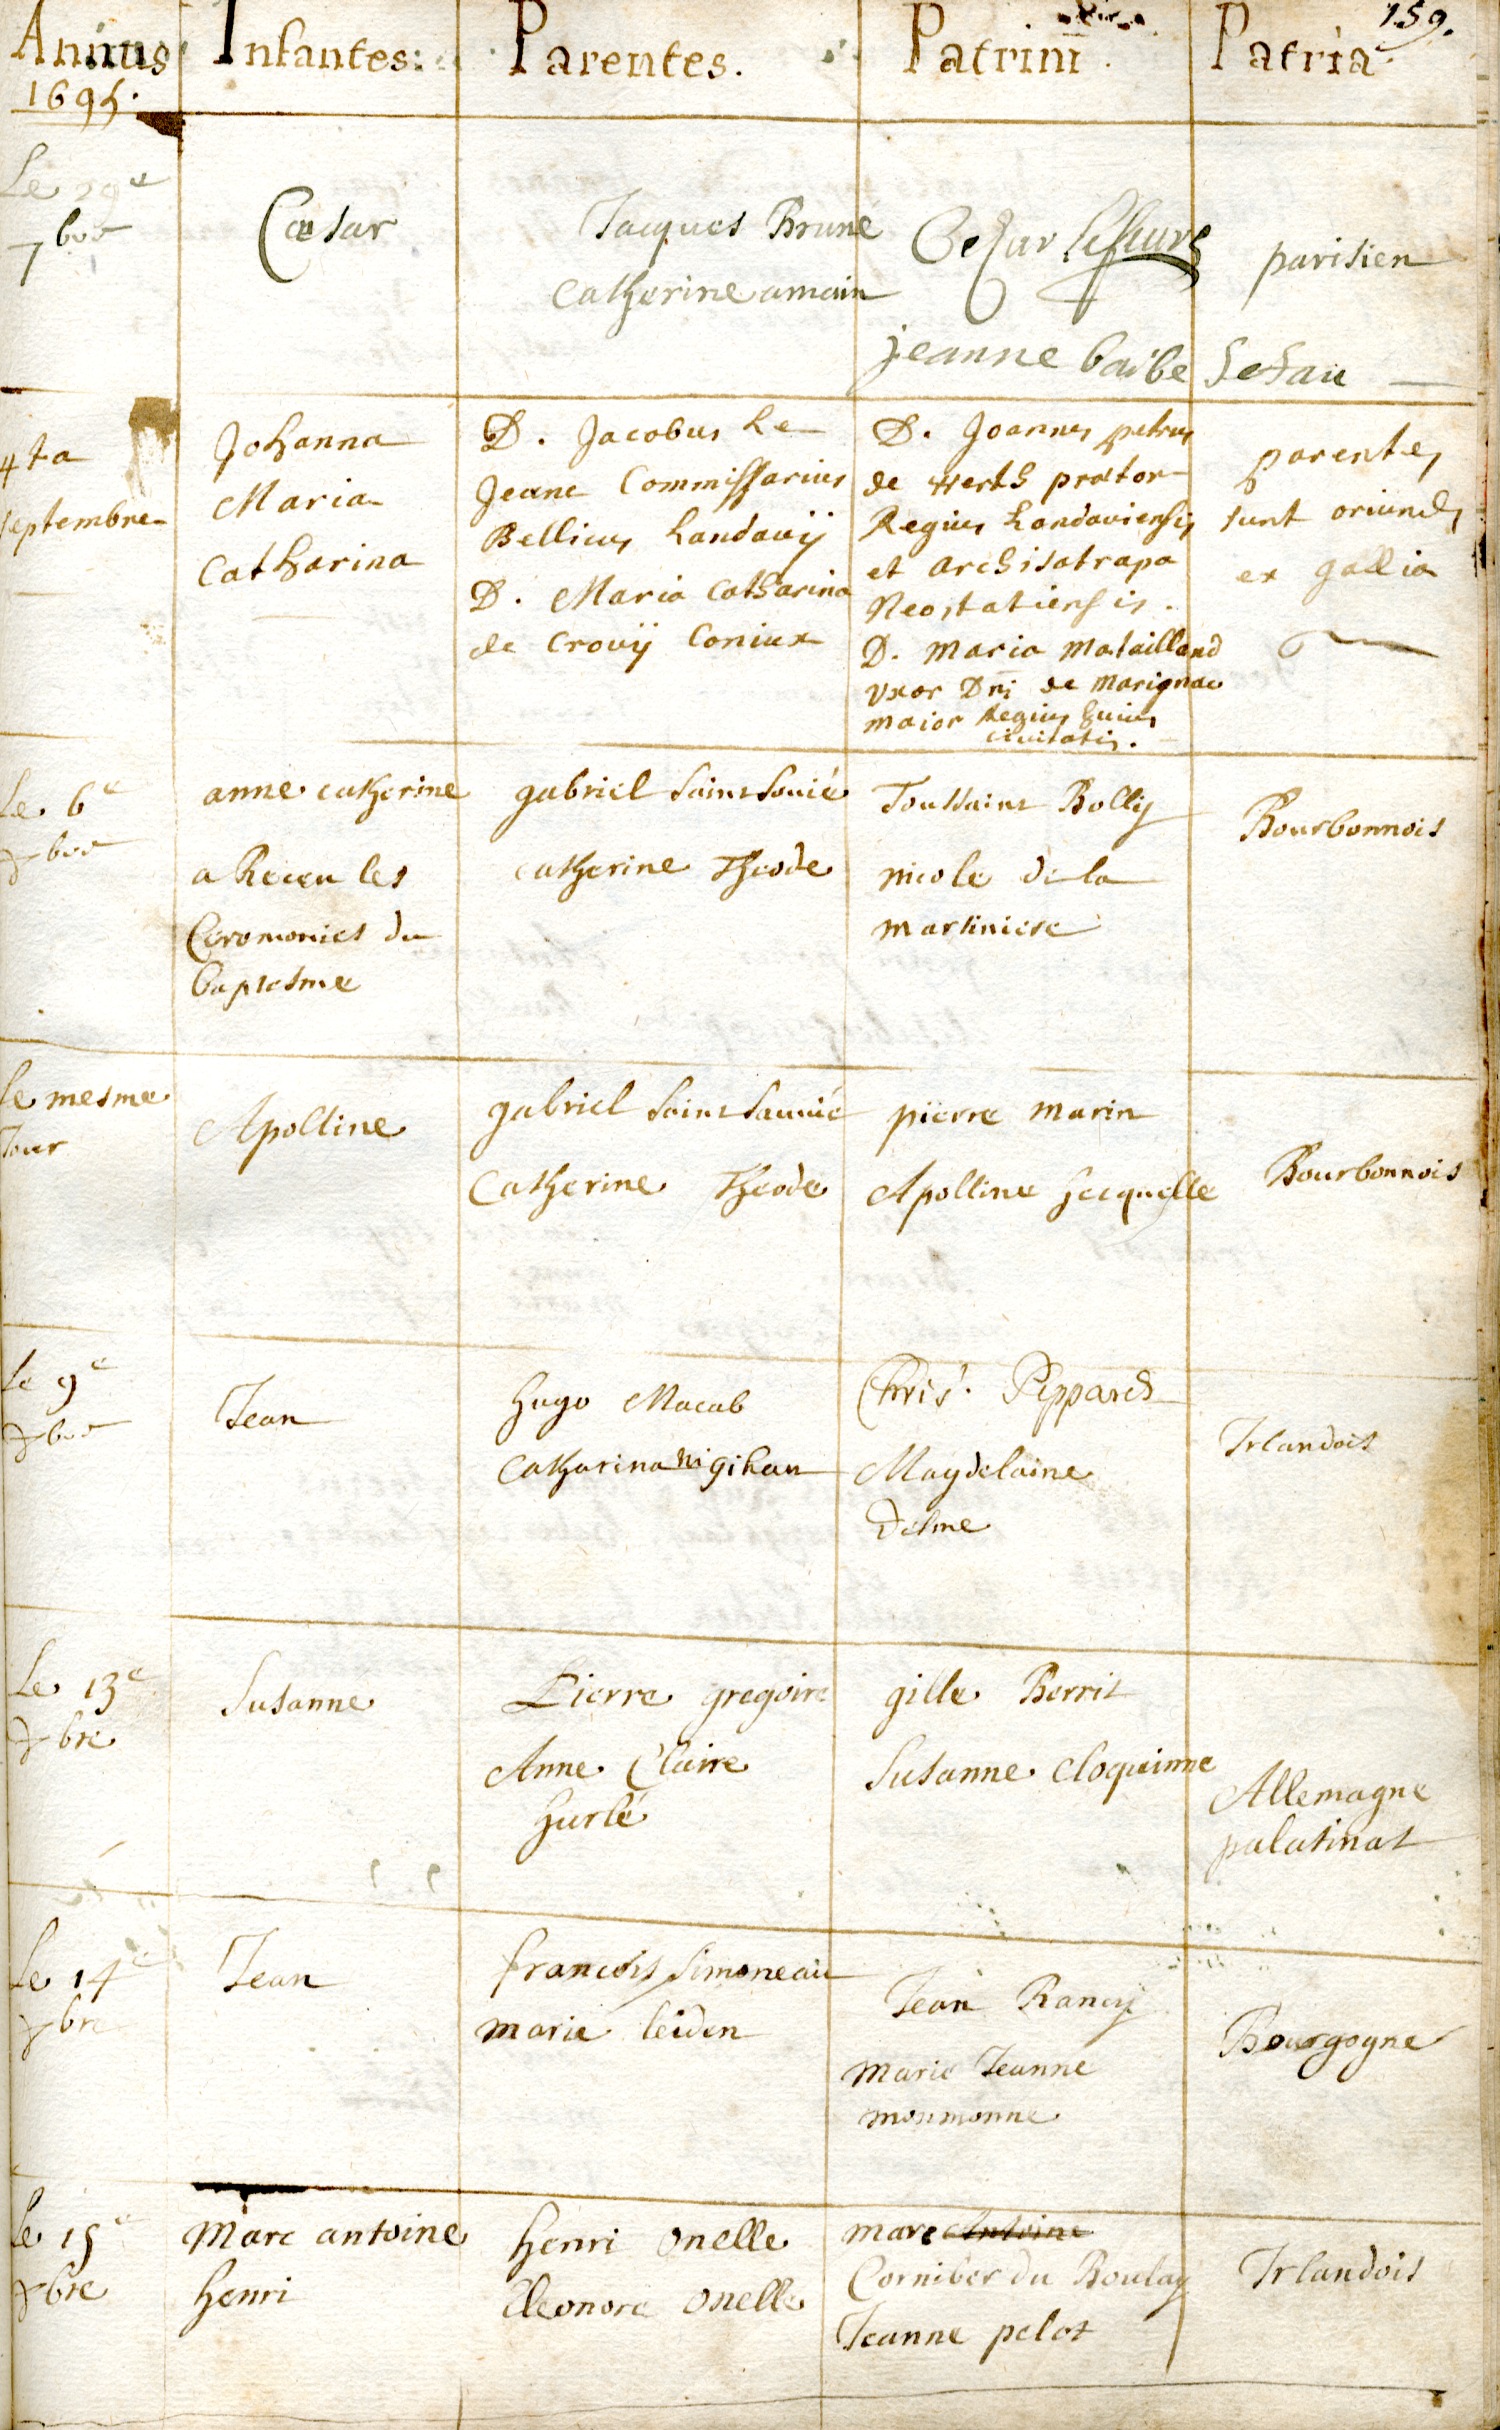 159.
Annus Infantes: Parentes. Patrini. Patria.
1695.
Le 29e
7bre
Cæsar
Jacques Bruné
Catherine amain
Cezar
jeanne baibe
parisien
Sedan
4ta
septembre
Johanna
Maria
Catharina
D. Jacobus Le
Jeune Commissarius
Bellicus Landavij
D. Maria Catharina
de Crouÿ Coniux
D. Joannes petrus
de Werth prætor
Regius Landaviensis
et archisatrapa
Neostatiensis.
D. Maria Matailland
vxor Dni de Marignac
maior Regius huius
civitatis.
parentes
sunt oriundi
ex gallia
Le 6e
7bre
anne catherine
a Receu les
Ceremonies du
baptesme
gabriel Saint Sauié
catherine Theode
Toussaint Bolly
nicole de la
martiniere
Bourbonnois
le mesme
Jour
Apolline
gabriel Saint Sauuié
Catherine Theode
pierre marin
Apolline hecquelle
Bourbonnois
Le 9e
7bre
Jean
hugo Macab
Catharina ni gihan
Chris. Peppard
Magdelaine
delme
Irlandois
Le 13e
7bre
Susanne
Pierre gregoire
Anne Claire
hurlé
gille Berrit
Susanne cloquinne
Allemagne
palatinat
Le 14e
7bre
Jean
francois Simoneau
marie leiden
Jean Rancy
Marie Jeanne
monmonne
Bourgogne
Le 15e
7bre
Marc antoine
henri
henri onelle
Eleonore onelle
marc Antoine
Corniber du Boulay
Jeanne pelot
Irlandois